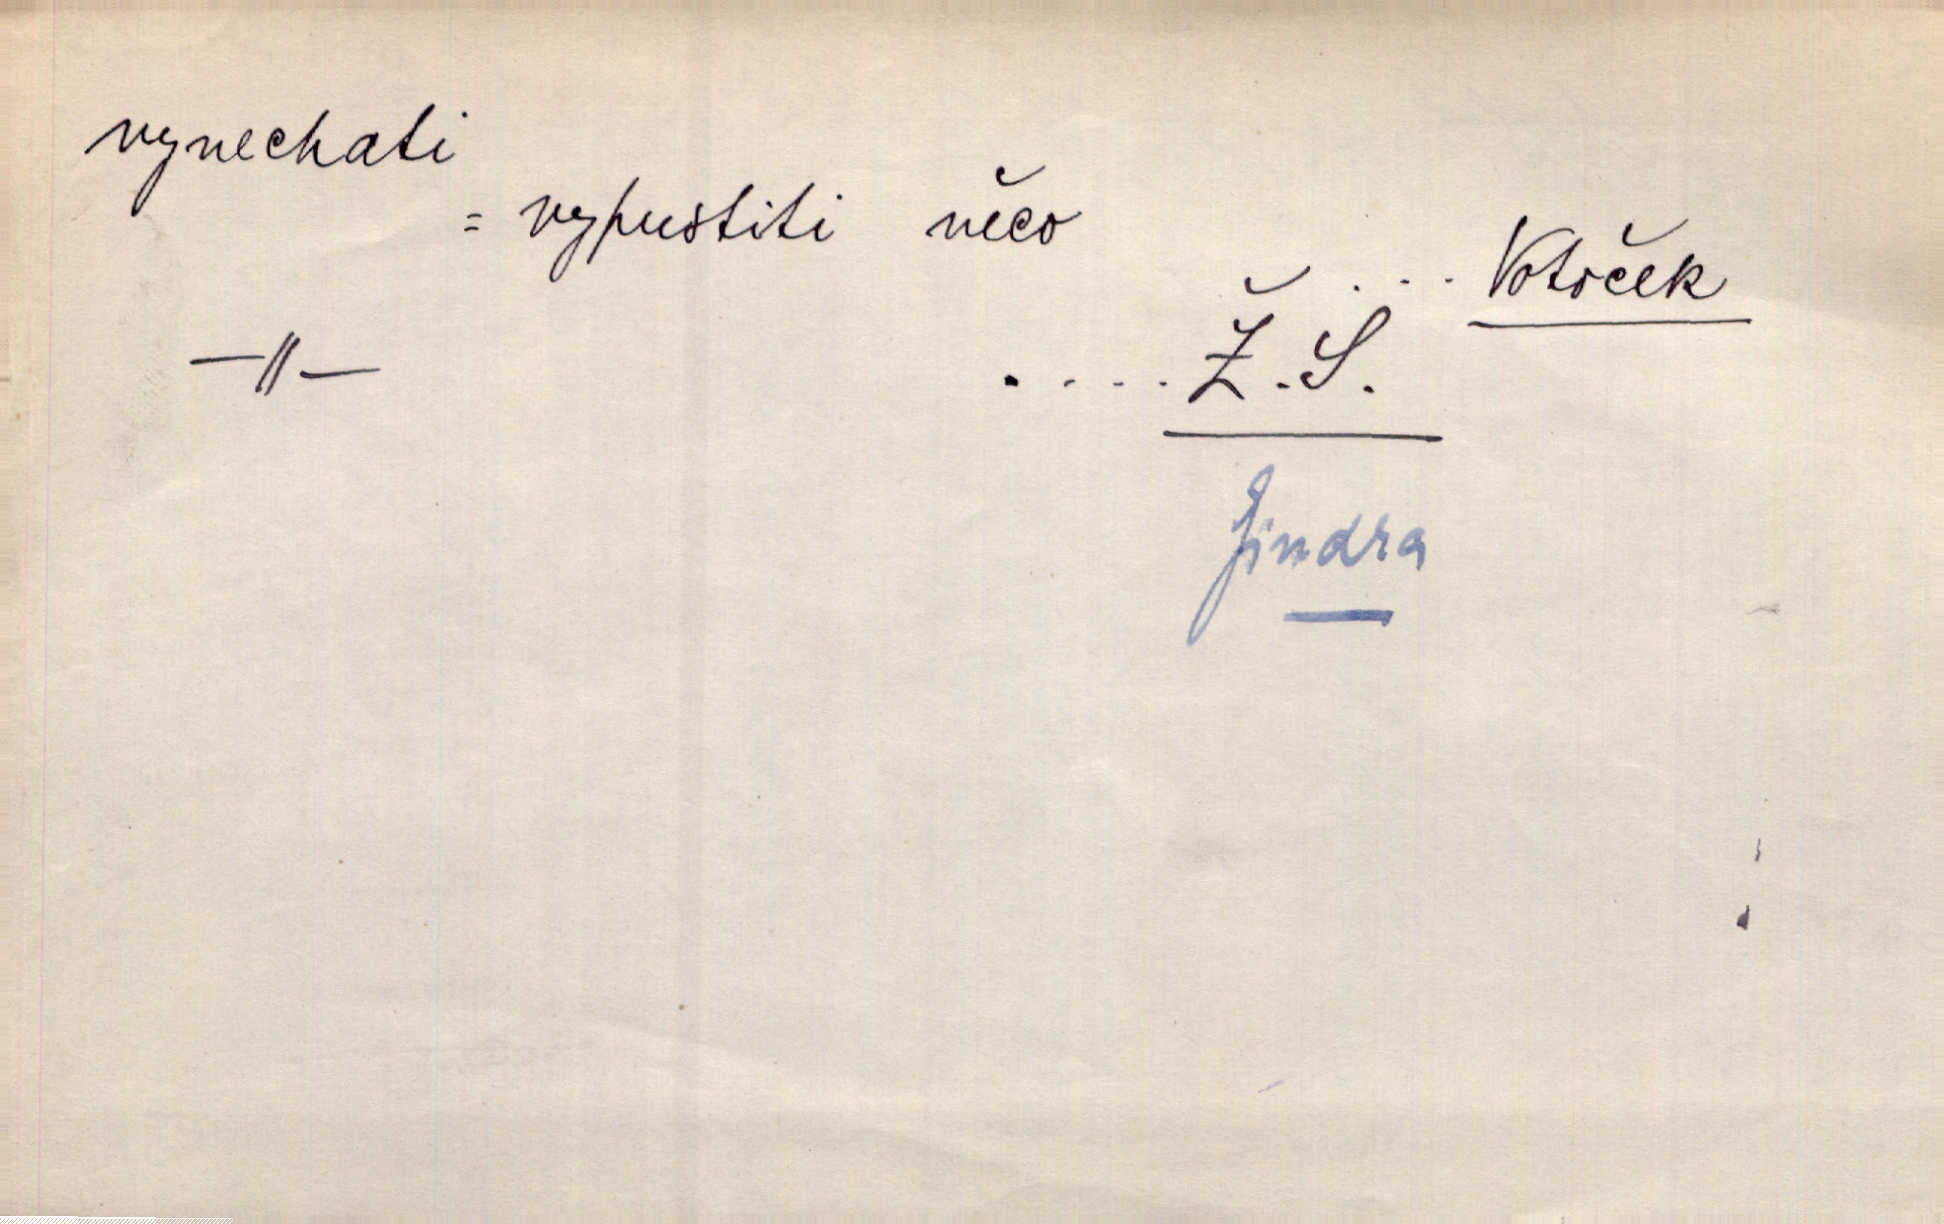 vynechati
= vypustiti něco
.... Votoček
—〃— ..... Ž.S.
Jindra